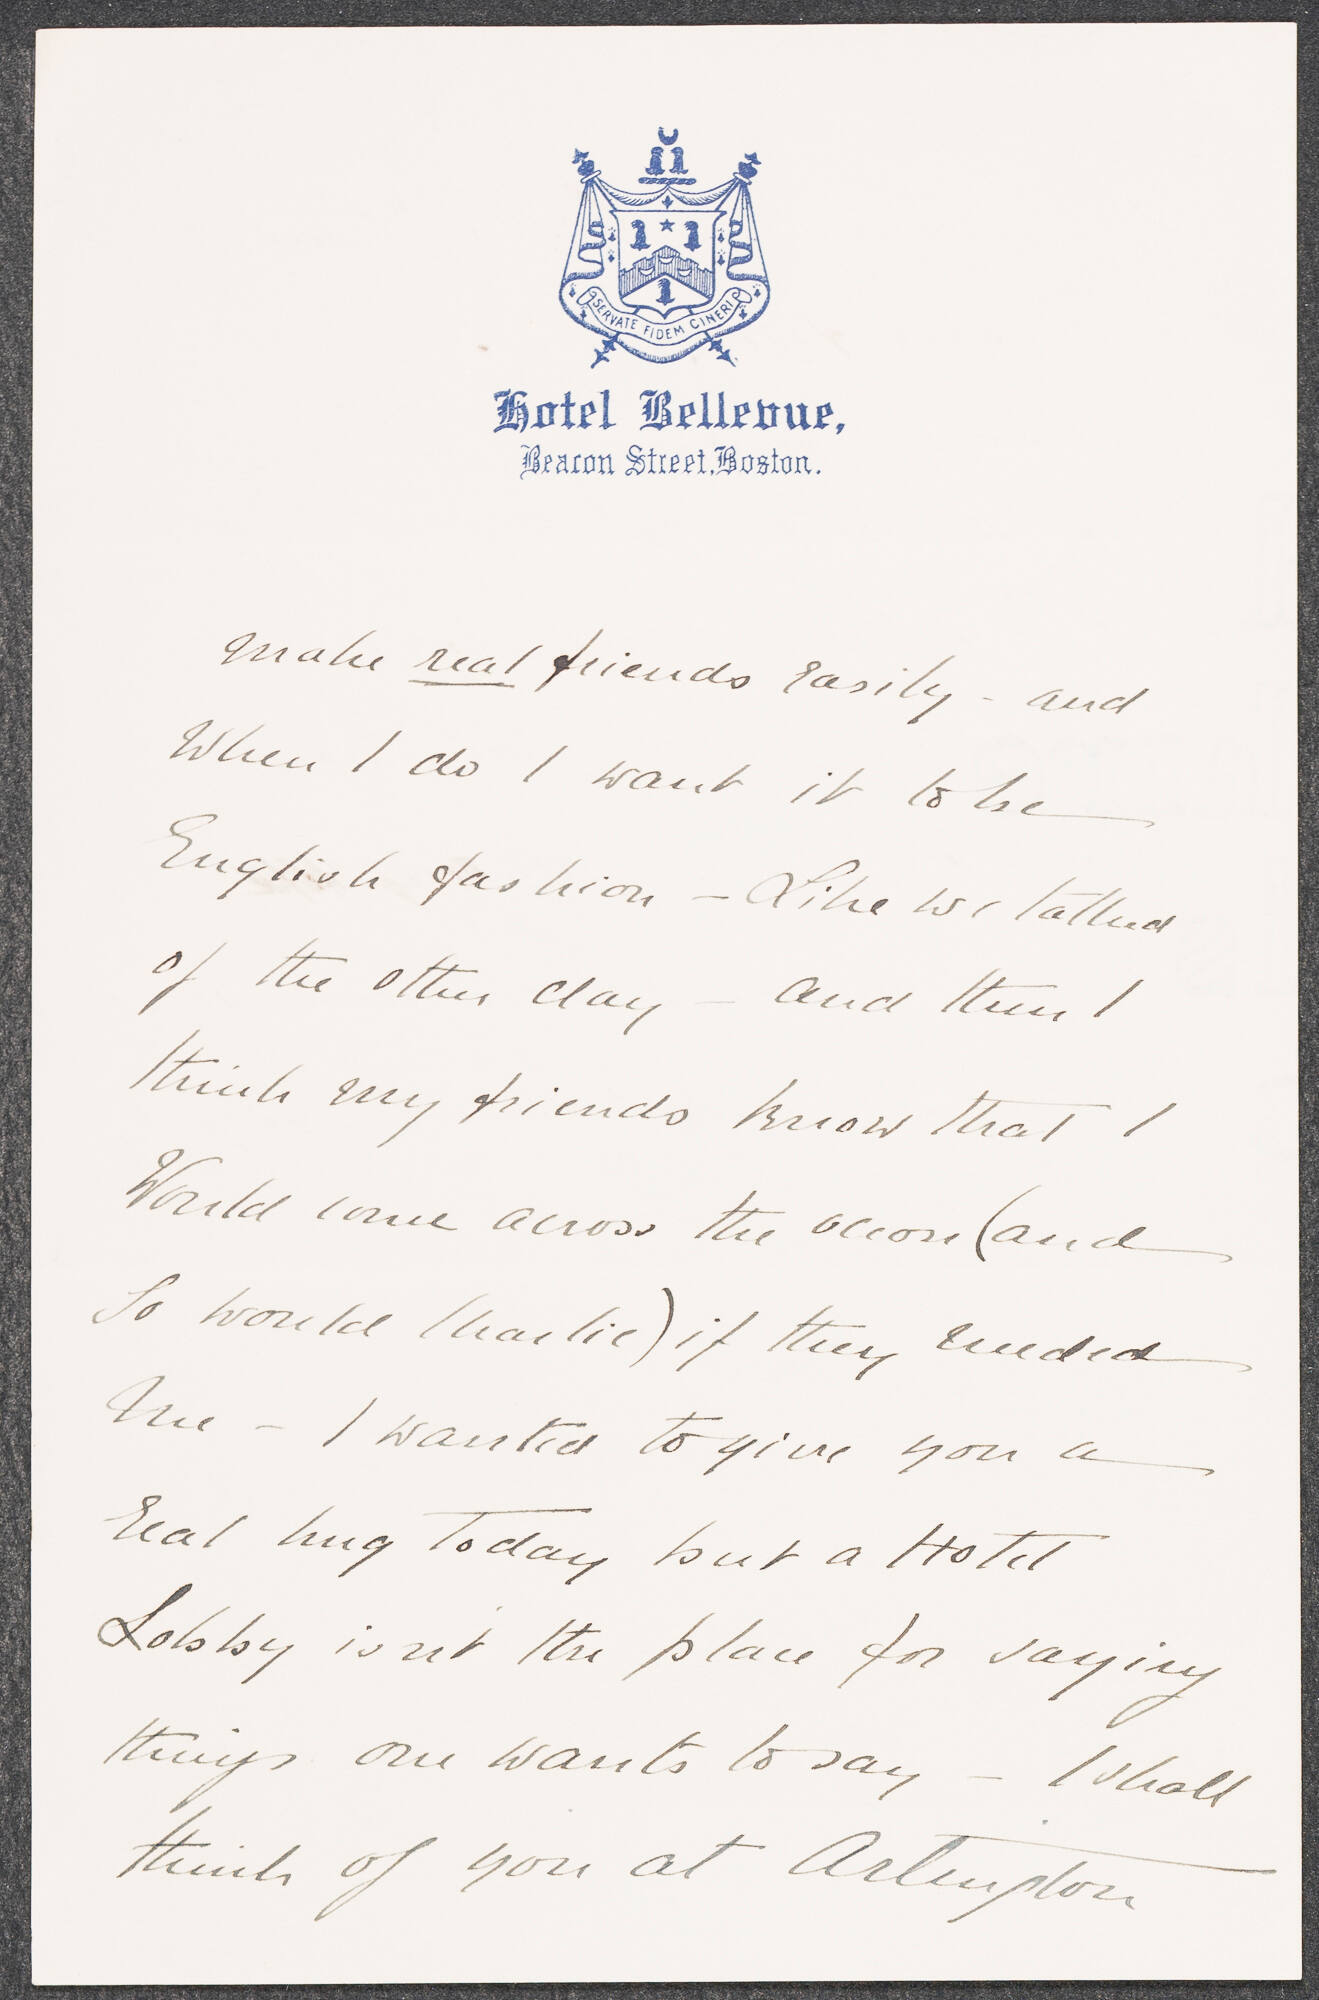 SERVATE FIDEM CINERI
Hotel Bellevue,
Beacon Street, Boston.
make real friends easily - and
When I do I want it to be
English fashion - Like we talked
of the other day - and then I
think my friends know that I
Would come across the ocean (and
So would Charlie) if they needed
me - I wanted to give you a
real hug today but a Hotel
Lobby isn't the place for saying
things one wants to say - I shall
think of you at Arlington